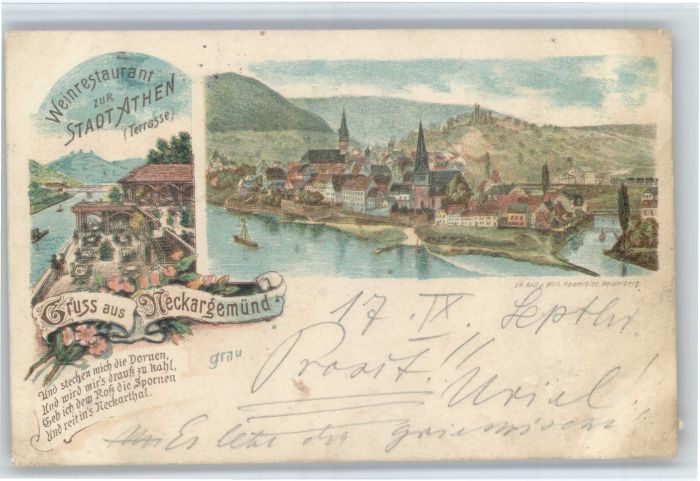 Weinrestaurant
ZUR
STADT ATHEN
(Terrasse)
Gruss aus Neckargemünd
Und stechen mich die Dornen,
Und wird mir's drauß zu kahl,
Geb ich dem Roß die Spornen
Und reit in's Neckarthal.
Heidelberg.
grau
17. IX. Septbr.
Prosit!!
Es lebe